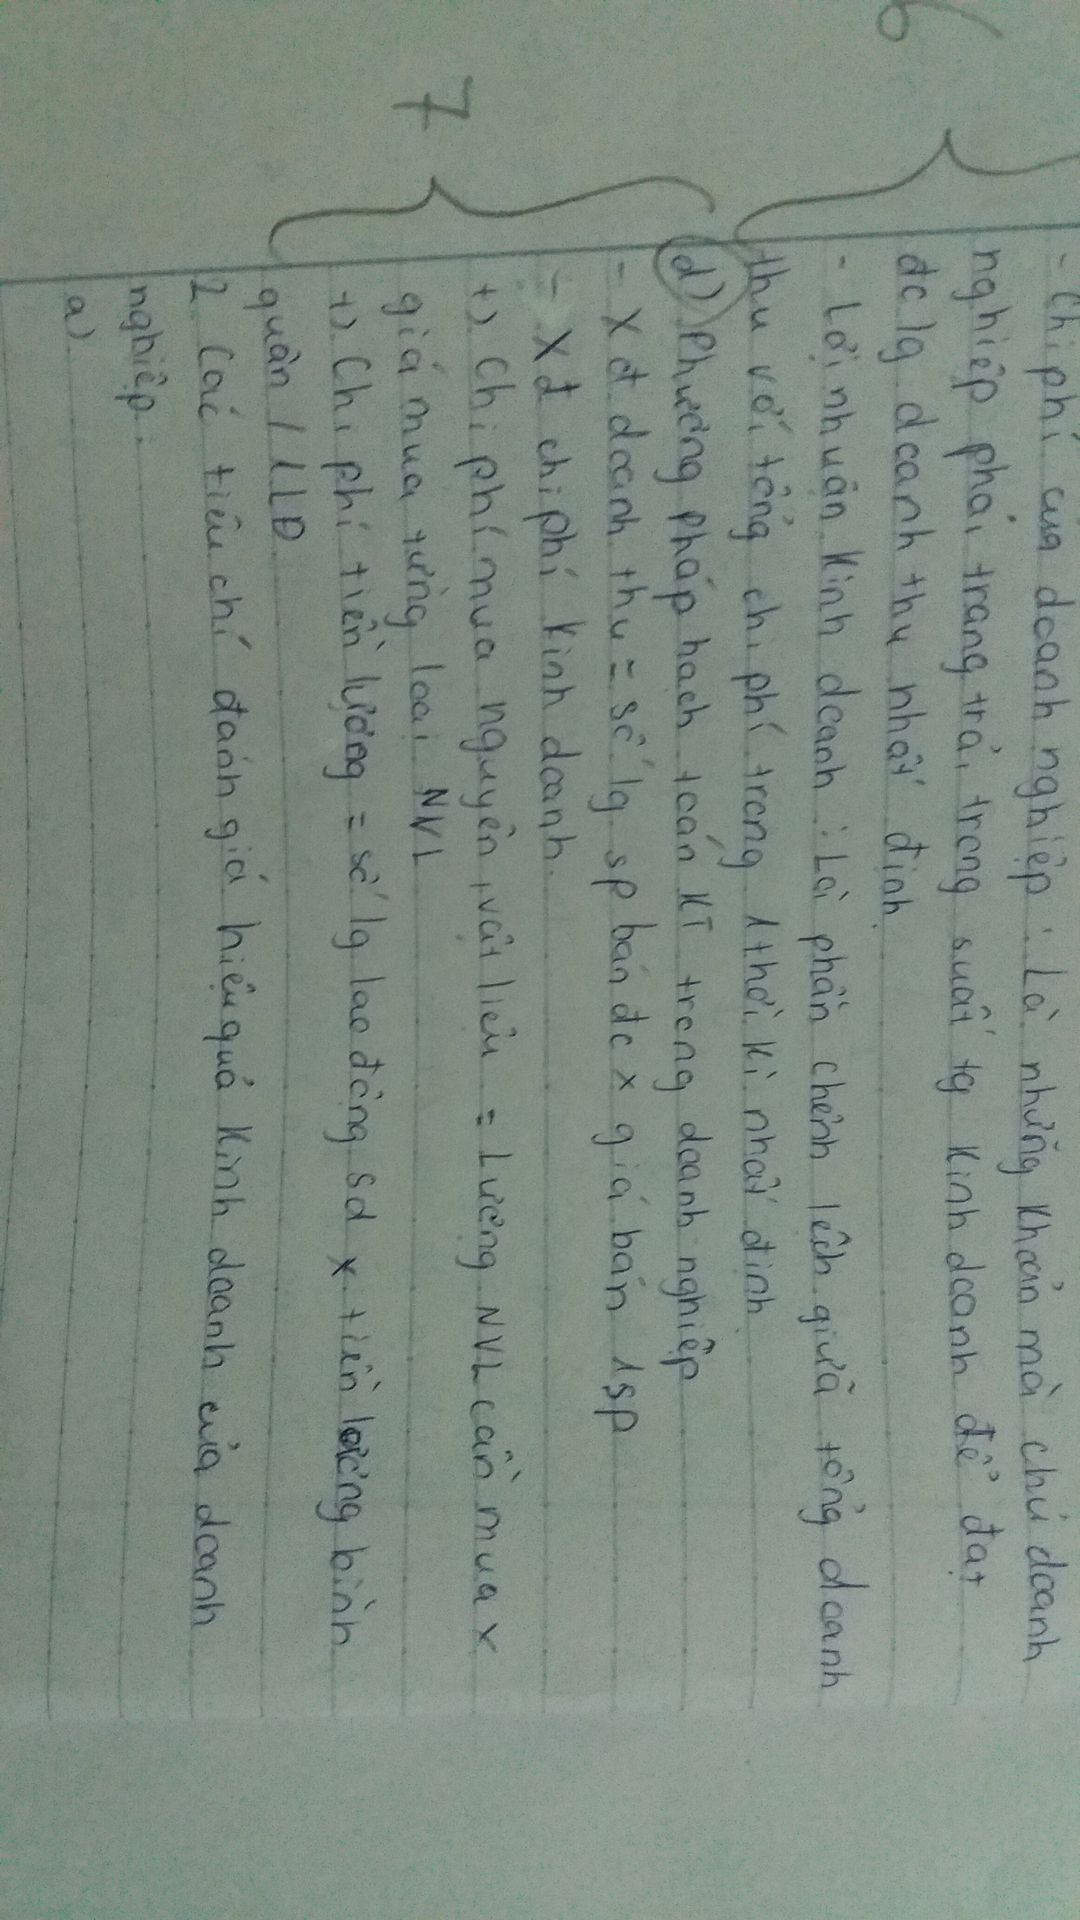 - Chi phí của doanh nghiệp : Là những khoản mà chủ doanh
nghiệp phải trang trải trong suất tg kinh doanh để đạt
đc lg doanh thu nhất định.
- Lợi nhuận kinh doanh : Là phần chênh lệch giữa tổng doanh
thu với tổng chi phí trong 1 thời kì nhất định.
d) Phương pháp hạch toán KT trong doanh nghiệp
- Xđ doanh thu = số lg sp bán đc x giá bán 1sp
- Xđ chi phí kinh doanh.
+) Chi phí mua nguyên, vật liệu = Lượng NVL cần mua x
giá mua từng loại NVL
+) Chi phí tiền lương = số lg lao động sd x tiền lương bình
quân / 1LĐ
2. Các tiêu chí đánh giá hiệu quả kinh doanh của doanh
nghiệp.
a)
6
7